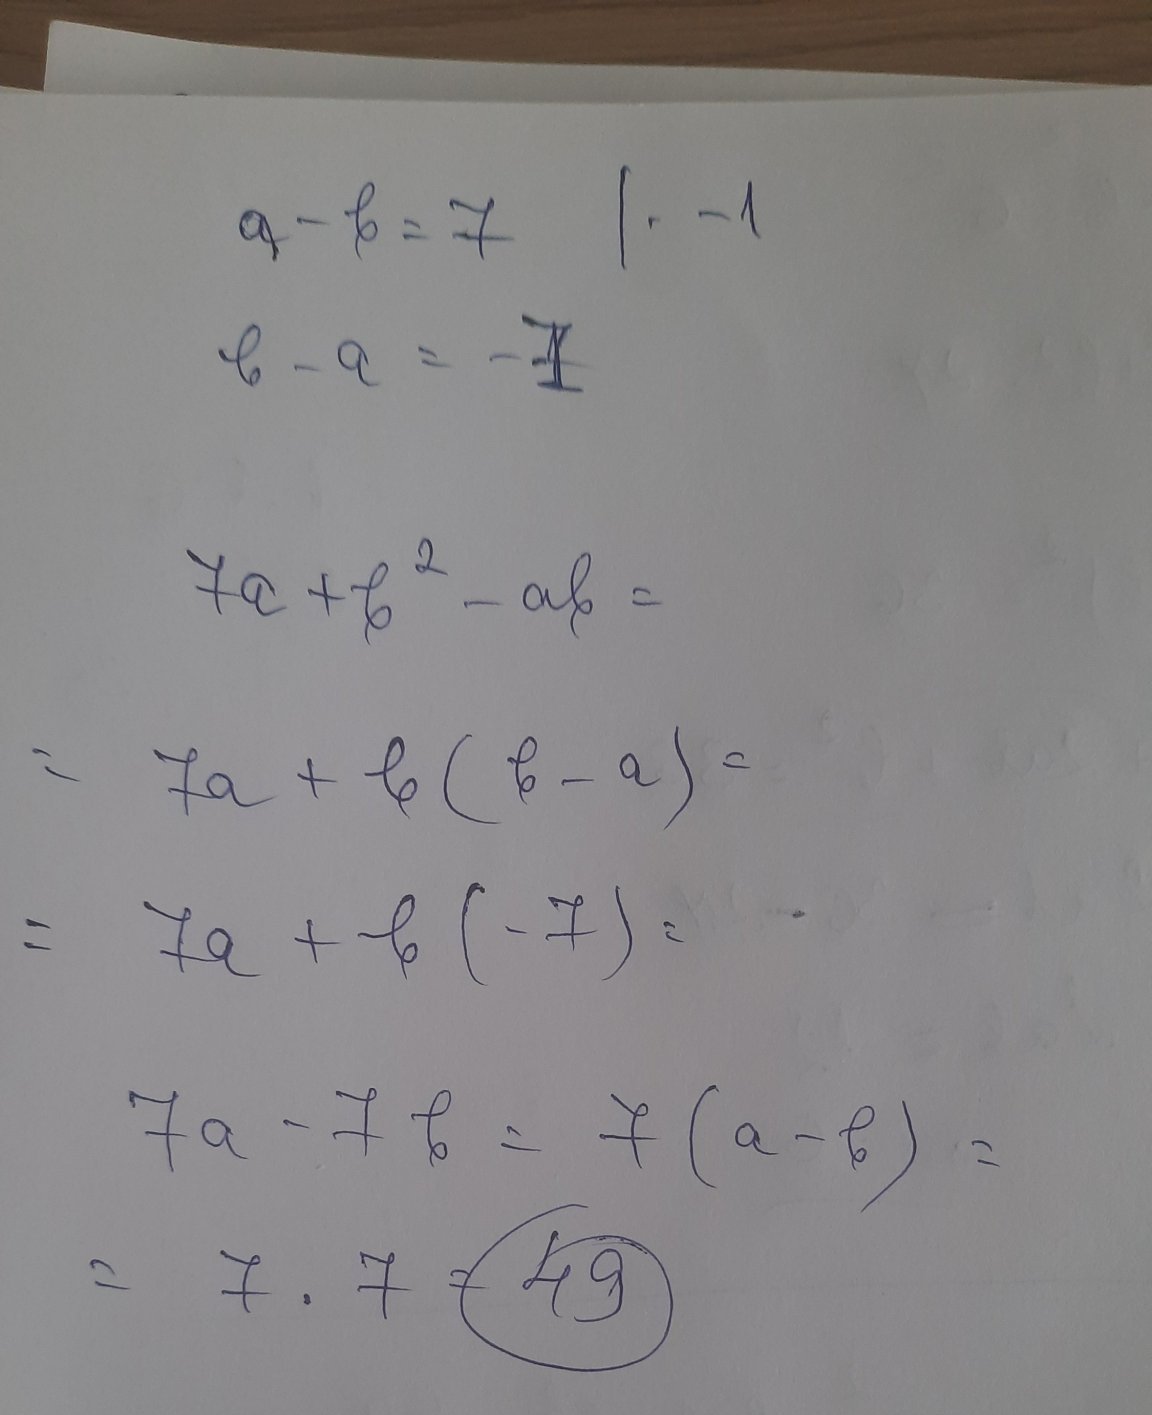 a - b = 7 | · -1
b - a = -7
7a + b² - ab =
= 7a + b ( b - a ) =
= 7a + b ( - 7 ) =
7a - 7 b = 7 ( a - b ) =
= 7 . 7 = 49